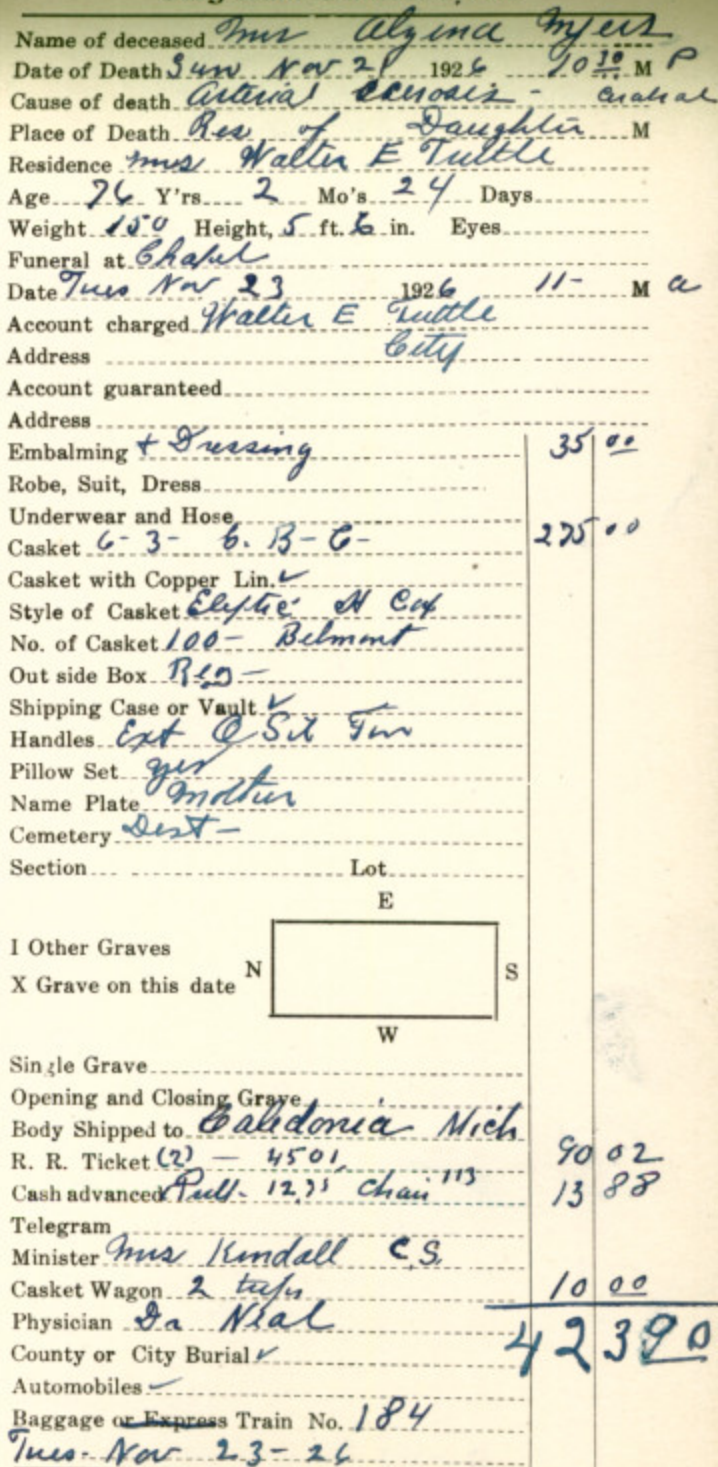 Name of deceased Mrs Algena Myers
Date of Death Sun Nov 21 1926 10 30 M P
Cause of death Arterial Scerosis - Cerebral
Place of Death Res. of Daughter M
Residence Mrs Walter E Tuttle
Age 76 Y'rs 2 Mo's 24 Days
Weight 150 Height, 5 ft. 6 in. Eyes
Funeral at Chapel
Date Tues Nov 23 1926 11- M a
Account charged Walter E Tuttle
Address City
Account guaranteed
Address
Embalming + Dressing 35 00
Robe, Suit, Dress
Underwear and Hose
Casket 6-3- 6. B-C- 275 00
Casket with Copper Lin. ✓
Style of Casket Eliptic
No. of Casket 100- Belmont
Out side Box Reg-
Shipping Case or Vault ✓
Handles Ext Sil
Pillow Set yes
Name Plate Mother
Cemetery Dest-
Section Lot
E
I Other Graves
N S
X Grave on this date
W
Single Grave
Opening and Closing Grave
Body Shipped to Caledonia Mich
R. R. Ticket (2) - 4501 90 02
Cash advanced Pull- 12.75 Chair 113 13 88
Telegram
Minister Mrs Kendall C.S.
Casket Wagon 2 trips 10 00
Physician Dr Neal 423 90
County or City Burial ✓
Automobiles
Baggage or Express Train No. 184
Tues- Nov 23-26